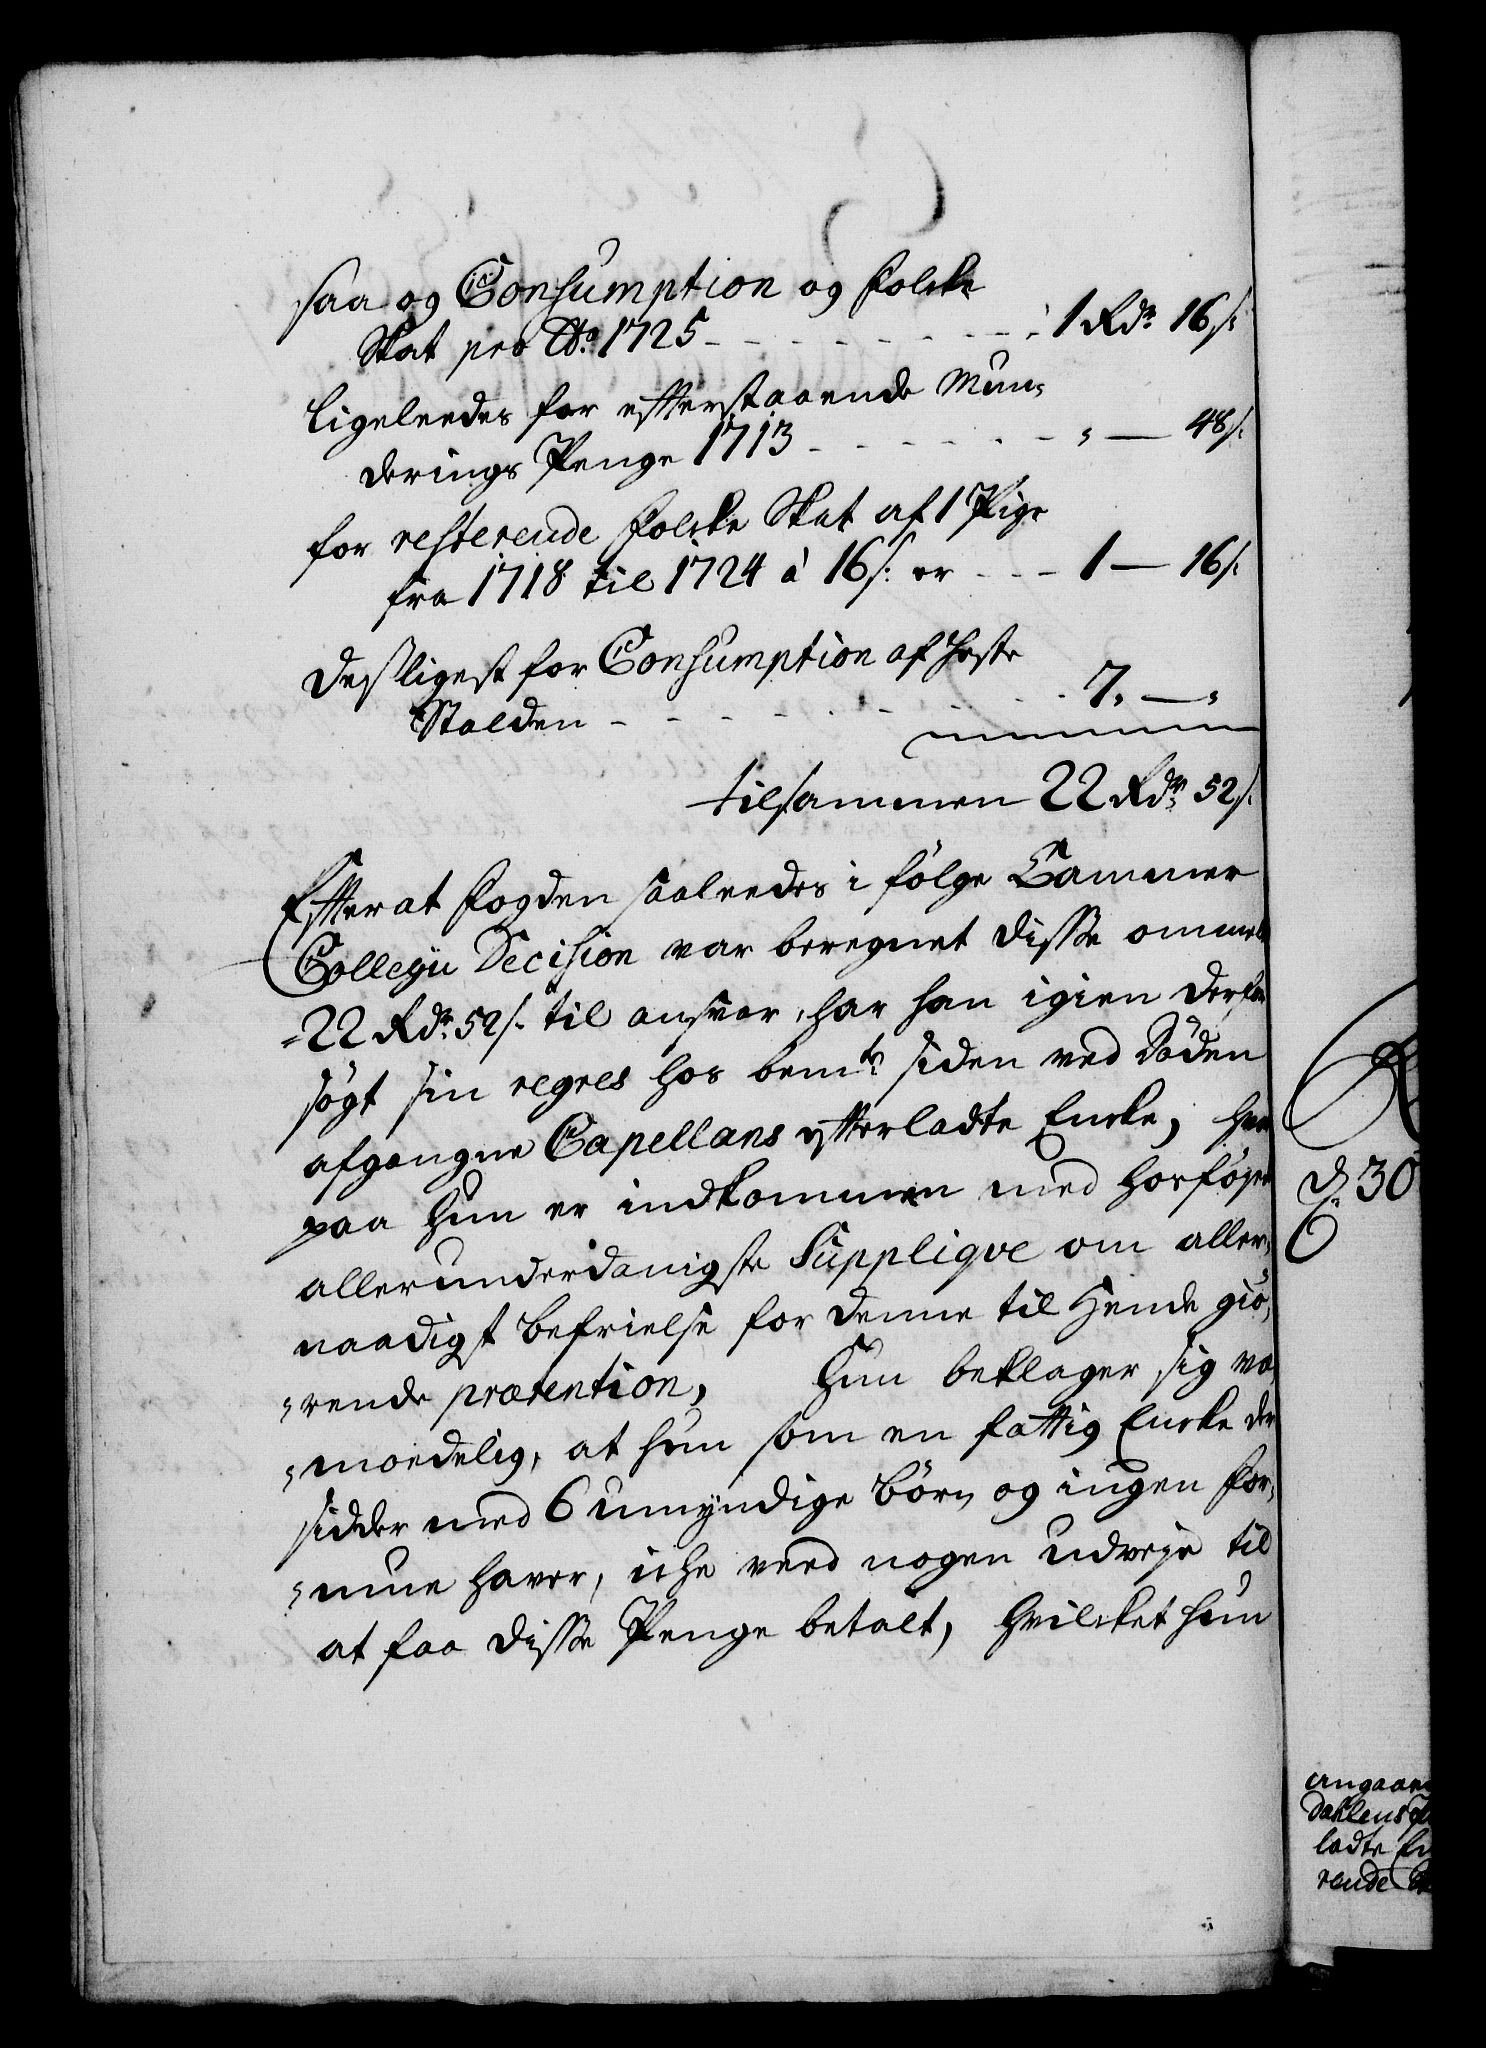 saa og Consumption og Folcke
Skat pro Ao. 1725 - - - - - - - - - 1 Rdr. 16 s:
ligeleedes for efterstaaende Mun-
derings Penge 1713 - - - - - - - " — 48 s.
for resterende Folcke Skat af 1 Pige
fra 1718 til 1724 à 16 s: er - - - 1 — 16 s:
desligest for Consumption af Heste
Stalden - - - - - - - - - 7. — "
tilsammen 22 Rdr. 52 s.
Efter at Fogden saaleedes i følge Cammer
Collegii Decision var beregnet disse ommelte
22 Rdr. 52 s. til ansvar, har han igien derfor
søgt sin regres hos bemte. siden ved Døden
afgangne Capellans efterladte Encke, hvor
paa hun er indkommen med hosføyede
allerunderdanigste Supplique om aller-
naadigst befrielse for denne til Hende giö-
rende prætention, Hun beklager sig ve-
moedelig, at hun som en fattig Encke der
sidder med 6 umyndige Börn og ingen For-
mue haver, iche veed nogen udveje til
at faa disse Penge betalt, hvilcket hun
d. 30
Angaaen
Dahlens
ladte En
rende